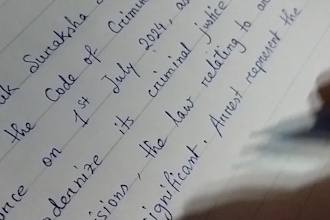 Suraksha
the Code of Crimin
on 1st July 2024, as
its criminal justice
the law relating to ar
significant. Arrest represent the